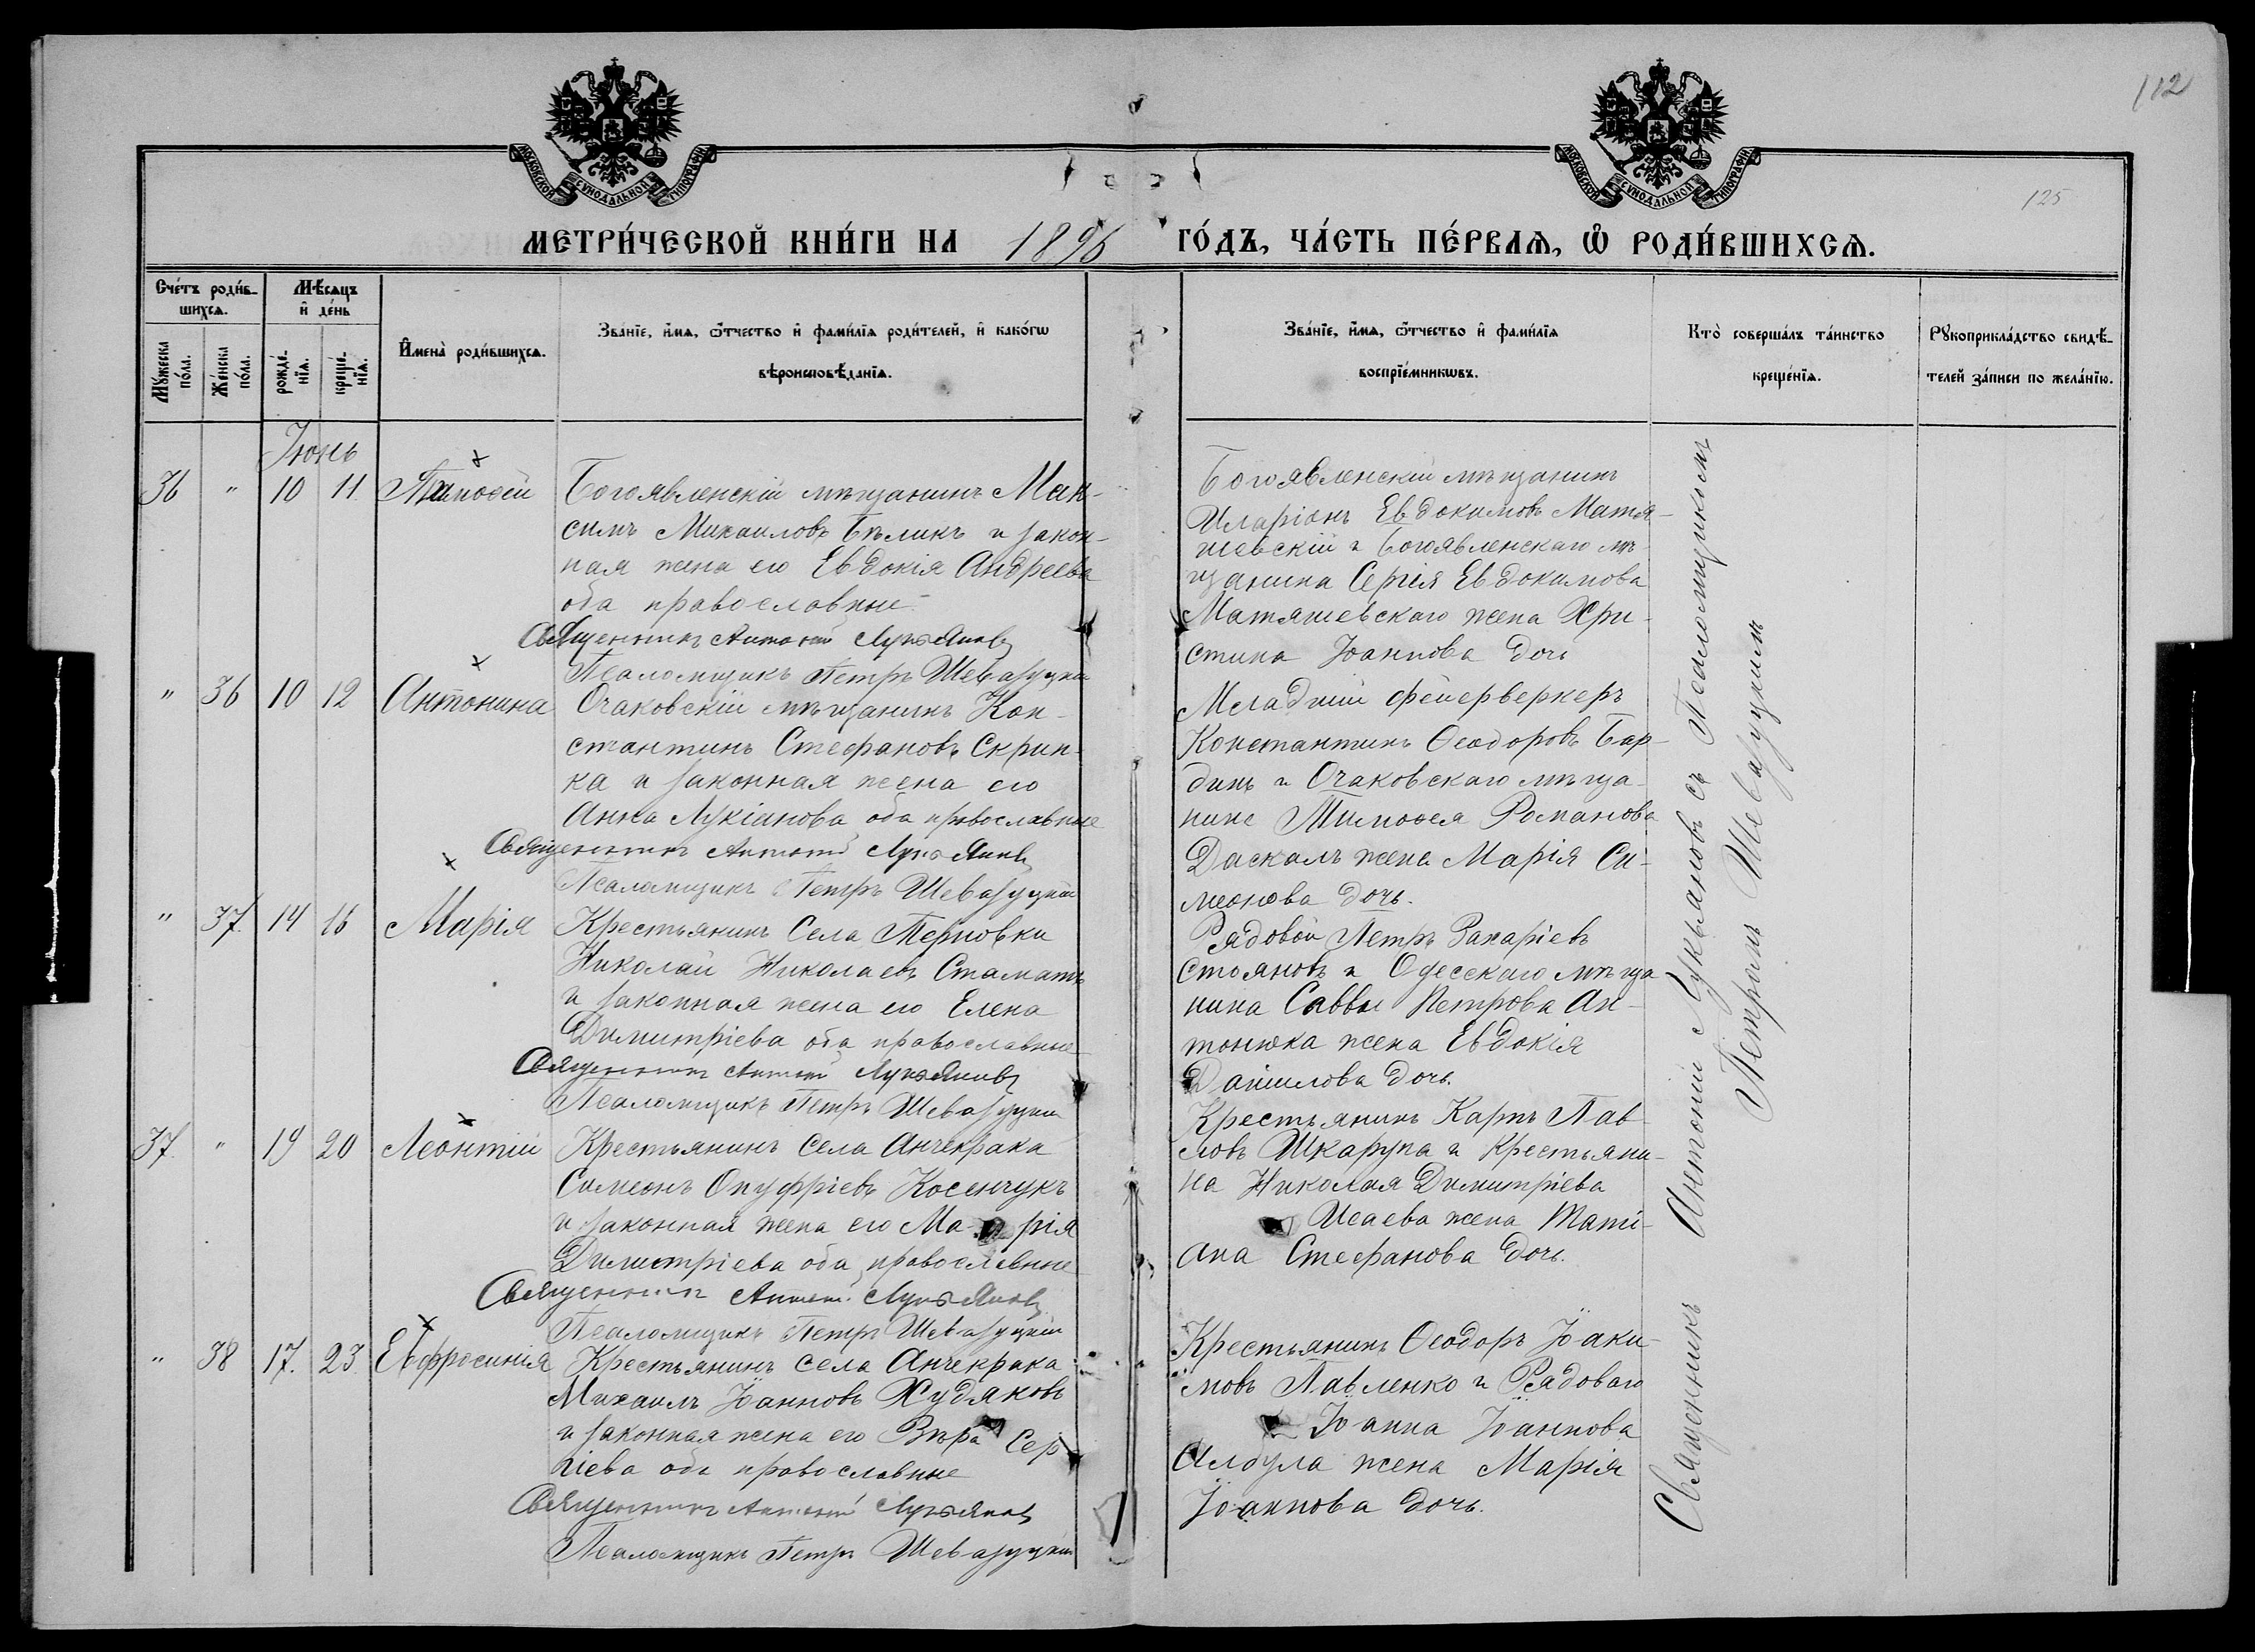 112
125
МОСКОВСКОЙ СѴНОДАЛЬНОЙ ТИПОГРАФІИ
МОСКОВСКОЙ СѴНОДАЛЬНОЙ ТИПОГРАФІИ
МЕТРИ́ЧЕСКОЙ КНИ́ГИ НА 1896 ГО́ДЪ, ЧА́СТЬ ПЕ́РВАѦ, Ѡ҆ РОДИ́ВШИХСѦ.
Сче́тъ роди́в-
шихсѧ.
Мꙋ́жеска по́ла.
Же́нска по́ла.
Мѣ́сѧцъ
и҆ де́нь
рожде́-
нїѧ.
креще́-
нїѧ.
И҆мена̀ роди́вшихсѧ.
Зва́нїе, и҆́мѧ, ѻ҆́тчество и҆ фами́лїѧ роди́телей, и҆ како́гѡ
вѣроисповѣ́данїѧ.
Зва́нїе, и҆́мѧ, ѻ҆́тчество и҆ фами́лїѧ
воспрїе́мникѡвъ.
Кто̀ соверша́лъ та́инство
креще́нїѧ.
Рꙋкоприкла́дство свидѣ́-
телей за́писи по жела́нїю.
Іюнь
36 " 10 11 Тимоѳей
Богоявленскій мѣщанинъ Мак-
симъ Михаиловъ Бѣликъ и закон-
ная жена его Евдокія Андреева
оба православные
Священникъ Антоній Лукьяновъ
Псаломщикъ Петръ Шевазуцкій
Богоявленскій мѣщанинъ
Иларіонъ Евдокимовъ Матя-
шевскій и Богоявленскаго мѣ-
щанина Сергія Евдокимова
Матяшевскаго жена Хри-
стина Іоаннова дочь
" 36 10 12 Антонина
Очаковскій мѣщанинъ Кон-
стантинъ Стефановъ Скрип-
ка и законная жена его
Анна Лукіанова оба православные
Священникъ Антоній Лукьяновъ
Псаломщикъ Петръ Шевазуцкій
Младшій фейерверкеръ
Константинъ Ѳеодоровъ Бар-
динъ и Очаковскаго мѣща-
нина Тимоѳея Романова
Даскалъ жена Марія Си-
меонова дочь.
" 37. 14 16 Марія
Крестьянинъ Села Терновки
Николай Николаевъ Стаматъ
и законная жена его Елена
Димитріева оба православные
Священникъ Антоній Лукьяновъ
Псаломщикъ Петръ Шевазуцкій
Рядовой Петръ Захаріевъ
Стояновъ и Одесскаго мѣща-
нина Саввы Петрова Ан-
тонюка жена Евдокія
Даніилова дочь.
37. " 19 20 Леонтій
Крестьянинъ села Анчекрака
Симеонъ Онуфріевъ Косенчукъ
и законная жена его Ма-рія
Димитріева оба православные
Священникъ Антоній Лукьяновъ
Псаломщикъ Петръ Шевазуцкій
Крестьянинъ Карпъ Пав-
ловъ Шкарупа и Крестьяни-
на Николая Димитріева
Исаева жена Тати-
ана Стефанова дочь.
" 38 17. 23. Евфросинія
Крестьянинъ села Анчекрака
Михаилъ Іоанновъ Худяковъ
и законная жена его Вѣра Сер-
гіева оба православные
Священникъ Антоній Лукьяновъ
Псаломщикъ Петръ Шевазуцкій
Крестьянинъ Ѳеодоръ Іоаки-
мовъ Павленко и Рядоваго
Іоанна Іоаннова
Албула жена Марія
Іоаннова дочь.
Священникъ Антоній Лукьяновъ съ Псаломщикомъ
Петромъ Шевазуцкимъ